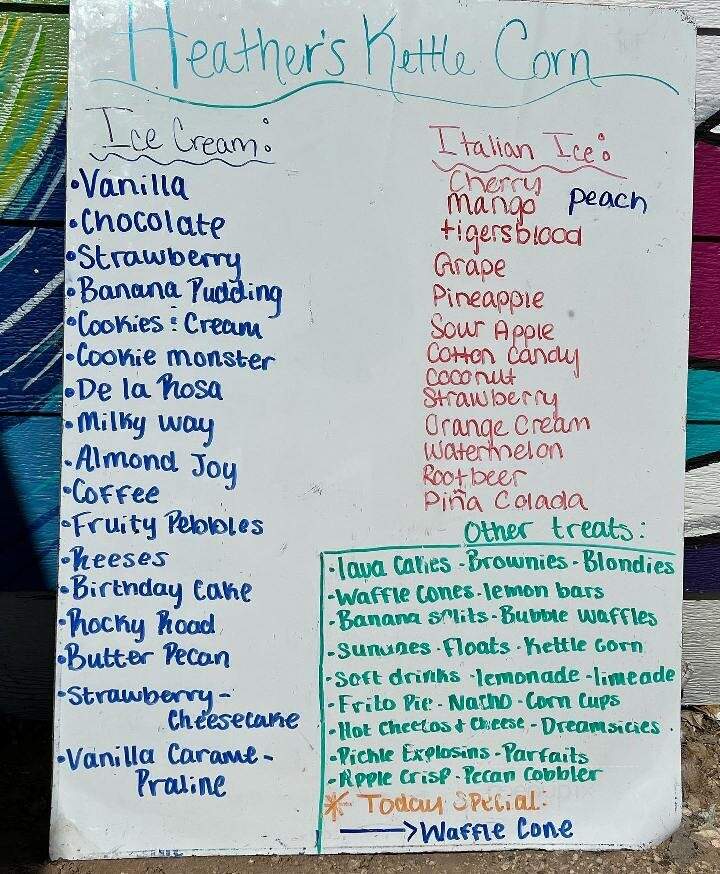 Heather's Kettle Corn
Ice Cream:
•Vanilla
•Chocolate
•Strawberry
•Banana Pudding
•Cookies : Cream
•Cookie monster
•De la Rosa
•Milky way
•Almond Joy
•Coffee
•Fruity Pebbles
•Reeses
•Birthday Cake
•Rocky Road
•Butter Pecan
•Strawberry-
Cheesecake
•Vanilla Carame-
Praline
Italian Ice:
Cherry
mango peach
tigersblood
Grape
Pineapple
Sour Apple
Cotton Candy
Coconut
Strawberry
Orange Cream
Watermelon
Rootbeer
Piña Colada
Other treats:
•lava Cakes -Brownies- Blondies
•Waffle Cones-lemon bars
•Banana splits-Bubble waffles
•Sundaes -Floats -Kettle Corn
•Soft drinks -lemonade -limeade
•Frito Pie - Nacho -Corn Cups
•Hot Cheetos & Cheese - Dreamsicles
•Pickle Explosins -Parfaits
•Apple Crisp -Pecan Cobbler
* Today Special:
→Waffle Cone